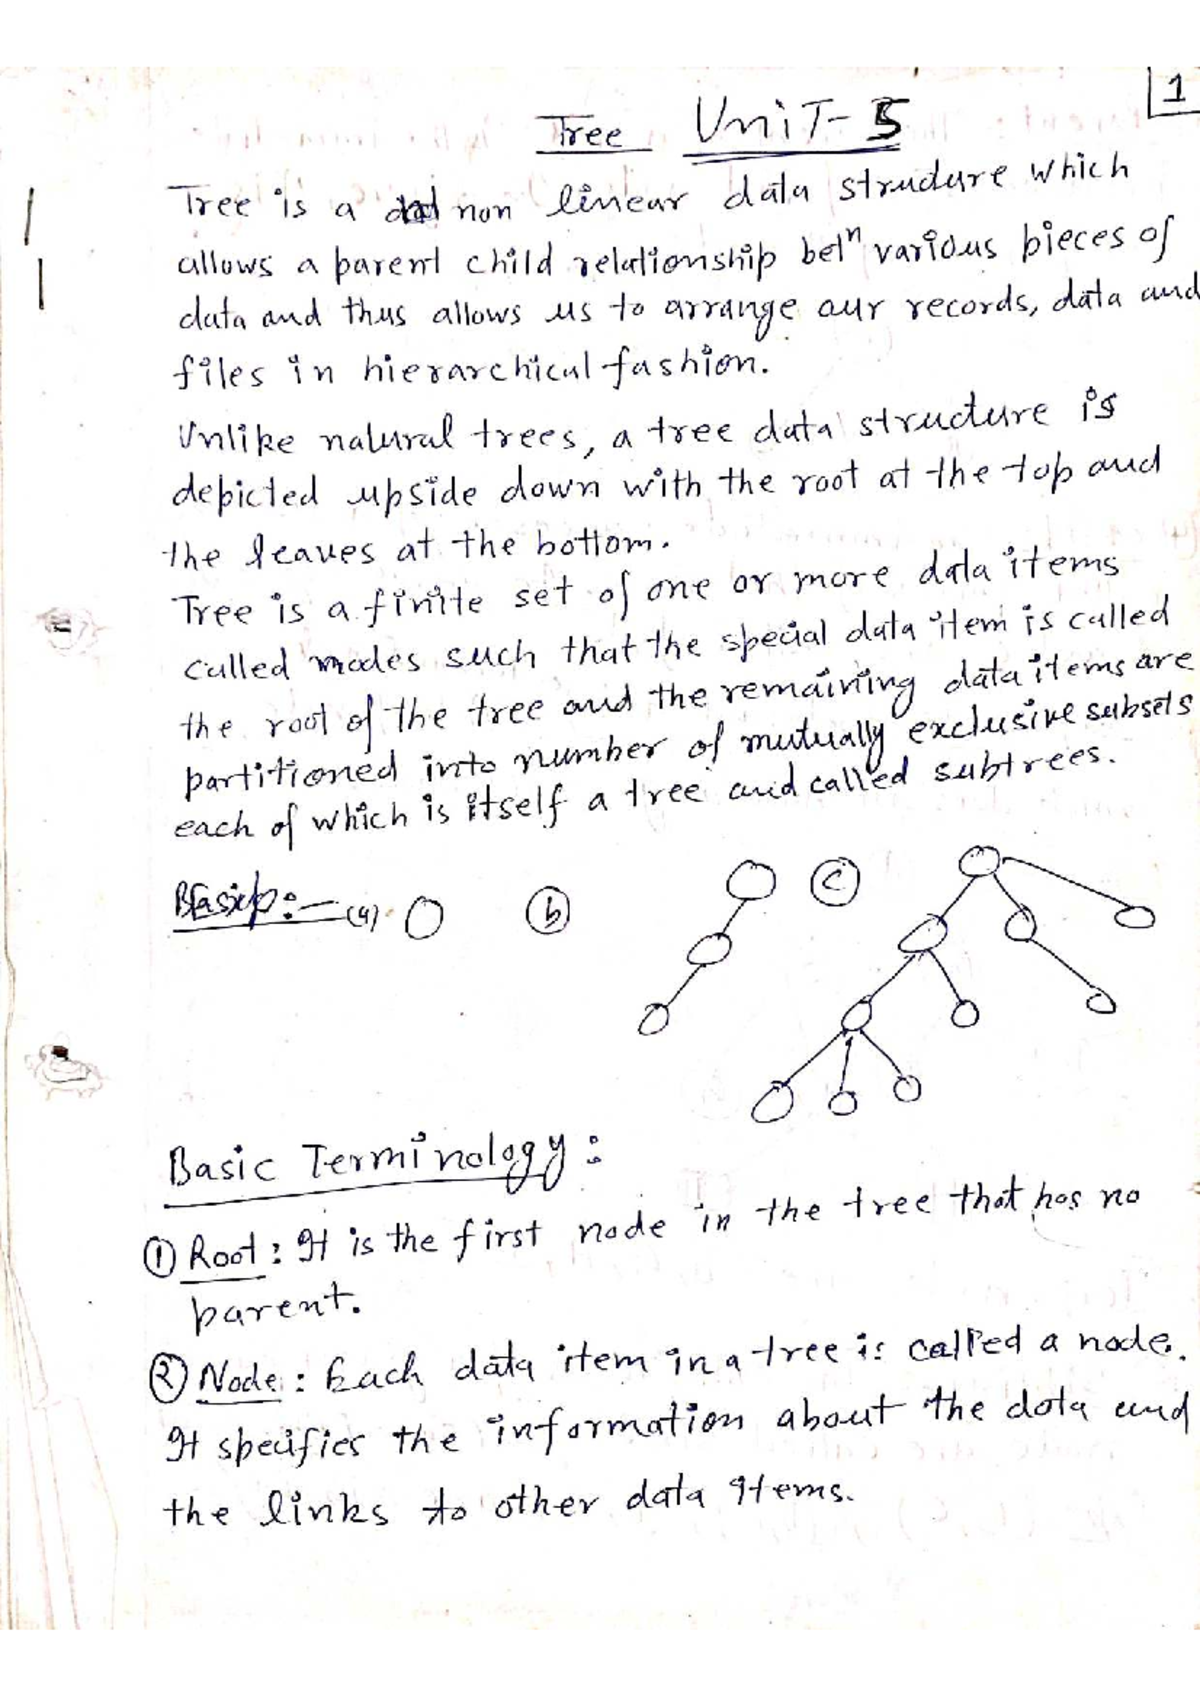 1
Tree UniT-5
Tree is a non linear data structure which
allows a parent child relationship betⁿ various pieces of
data and thus allows us to arrange our records, data and
files in hierarchical fashion.
Unlike natural trees, a tree data structure is
depicted upside down with the root at the top and
the leaves at the bottom.
Tree is a finite set of one or more data items
called nodes such that the special data item is called
the root of the tree and the remaining data items are
partitioned into number of mutually exclusive subsets
each of which is itself a tree and called subtrees.
(a) (b) (c)
Basic Terminology:
① Root: It is the first node in the tree that has no
parent.
② Node: Each data item in a tree is called a node.
It specifies the information about the data and
the links to other data items.